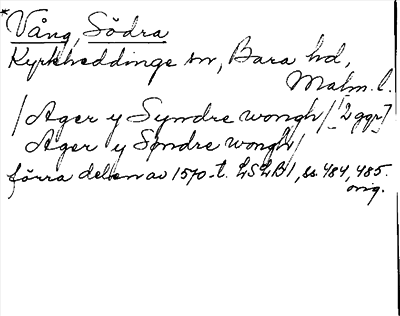 * Vång, Södra
Kyrkheddinge sn, Bara hd,
Malm. l.
/Ager y Syndre wongh/ [2 ggr]
Ager y Søndre wongh/
förra delen av 1570-t. LSLB1, ss. 484, 485.
orig.